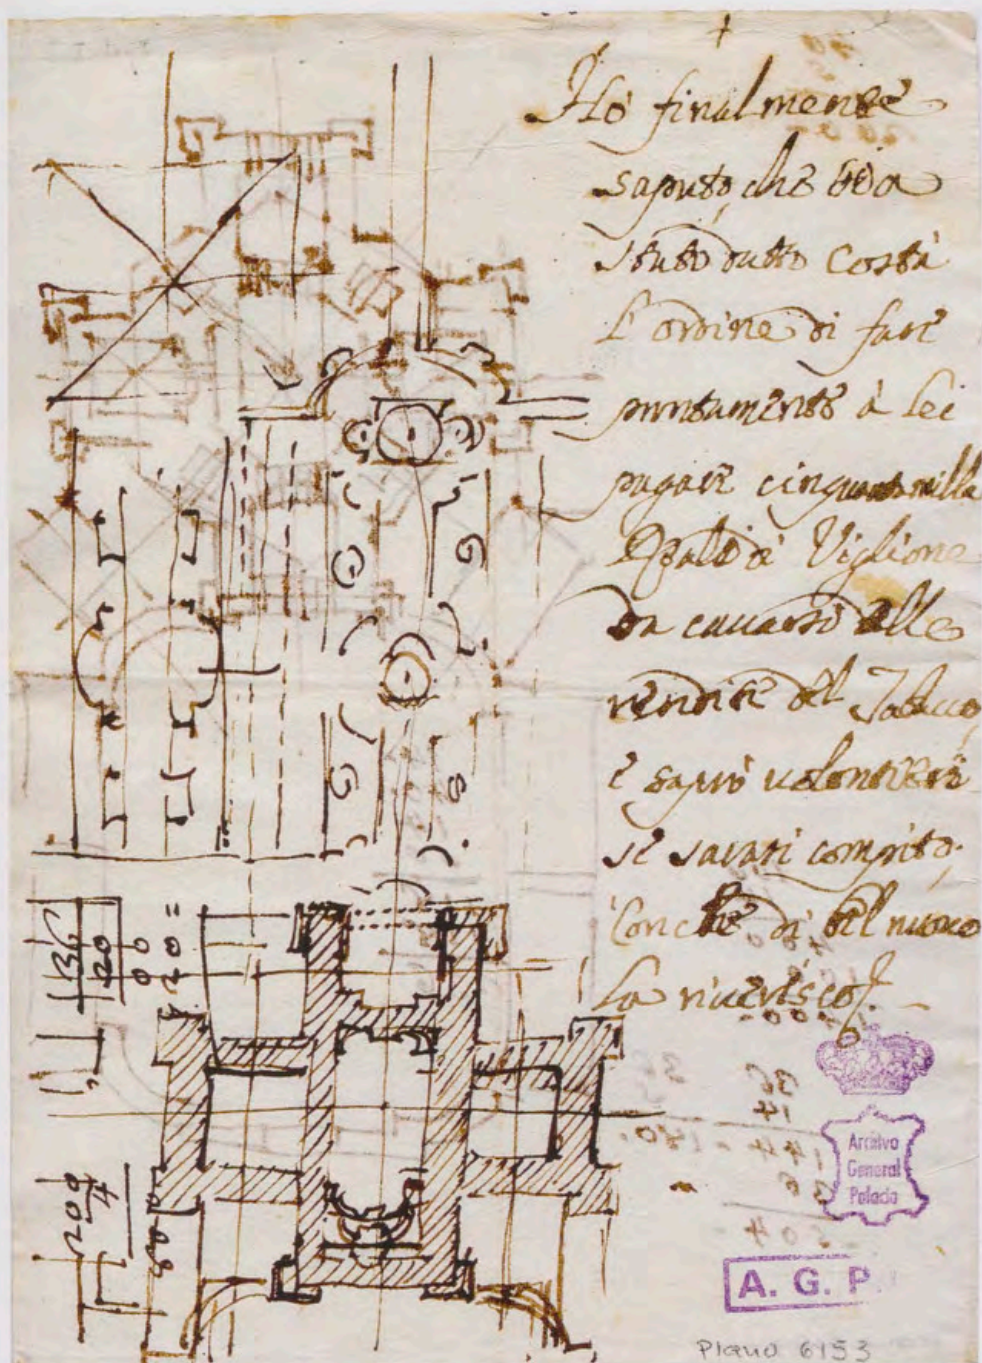 Hò finalmente
saputo, che sia
stato dato costà
l'ordine di fare
puntamente à lei
pagare cinquantamilla
di Viglione
da cavarsi dalle
rendite del Tabacco,
e saprò volontieri
se sarassi compito.
Conche di bel nuovo
La riverisco.
136
20
00
720=
209
4
36
14
144
504
Archivo
General
Palacio
A. G. P.
Plano 6153